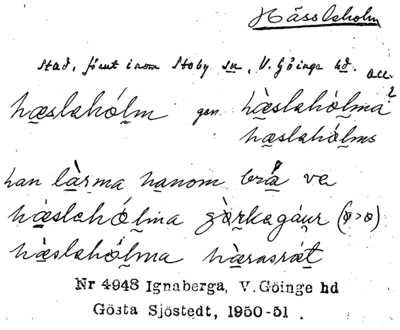 Hässleholm
Stad, förut inom Stoby sn, V. Göinge hd. acc. 2
hæslahólm gen. hæ̀slahòlma
hæslahólms
han læ̀rma hanom brá va
hæ̀slahólma gòrkagáur (ɵ > o)
hæ̀slahólma hæ̀rasrǽt
Nr 4948 Ignaberga, V. Göinge hd
Gösta Sjöstedt, 1950-51.